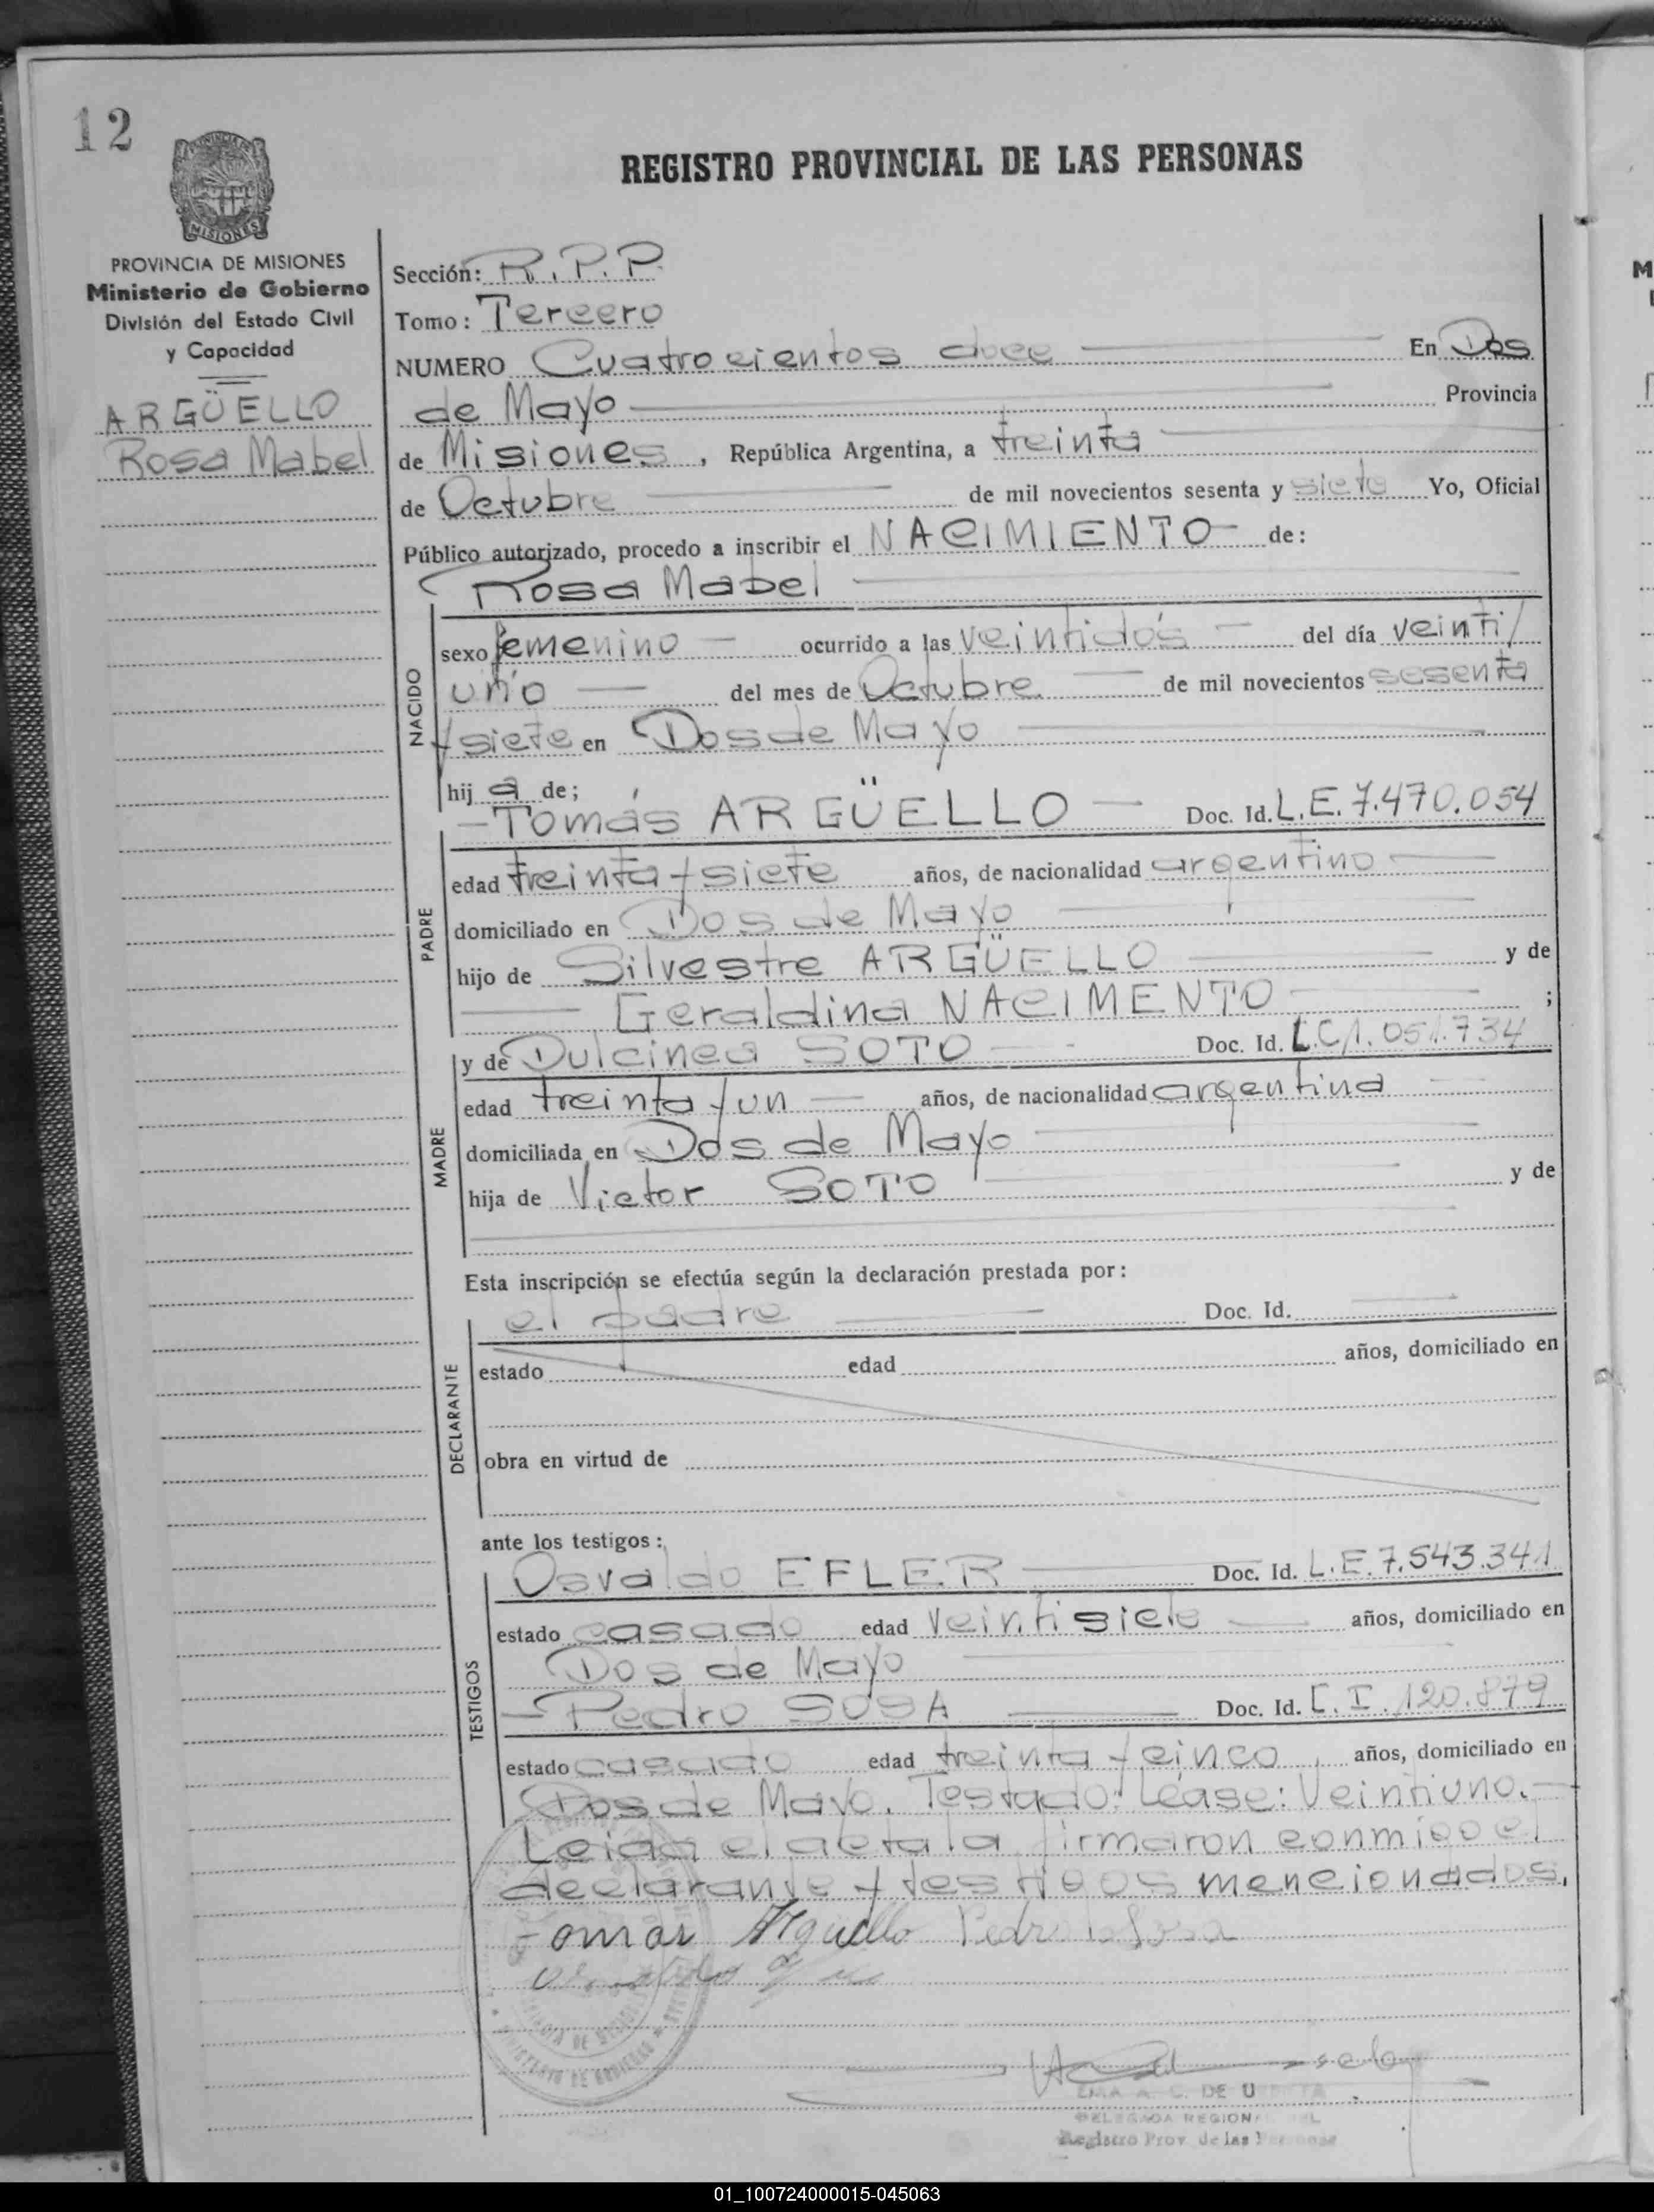 12
REGISTRO PROVINCIAL DE LAS PERSONAS
MISIONES
PROVINCIA DE MISIONES
Ministerio de Gobierno
División del Estado Civil
y Capacidad
ARGÜELLO
Rosa Mabel
Sección: R.P.P.
Tomo: Tercero
NUMERO Cuatrocientos doce En Dos
de Mayo Provincia
de Misiones, República Argentina, a treinta
de Octubre de mil novecientos sesenta y siete Yo, Oficial
Público autorizado, procedo a inscribir el NACIMIENTO de:
Rosa Mabel
NACIDO
sexo femenino ocurrido a las veintidós del día veinti/
uno del mes de Octubre de mil novecientos sesenta
y siete en Dos de Mayo
hij a de;
Tomás ARGÜELLO Doc. Id. L.E. 7.470.054
PADRE
edad treinta y siete años, de nacionalidad argentino
domiciliado en Dos de Mayo
hijo de Silvestre ARGÜELLO y de
Geraldina NACIMENTO ;
y de Dulcinea SOTO Doc. Id. L.C 1.051.734
MADRE
edad treinta y un años, de nacionalidad argentina
domiciliada en Dos de Mayo
hija de Victor SOTO y de
Esta inscripción se efectúa según la declaración prestada por:
el padre Doc. Id.
DECLARANTE
estado edad años, domiciliado en
obra en virtud de
ante los testigos:
Osvaldo EFLER Doc. Id. L.E. 7.543.341
TESTIGOS
estado casado edad veintisiete años, domiciliado en
Dos de Mayo
Pedro SOSA Doc. Id. C.I. 120.879
estado casado edad treinta y cinco años, domiciliado en
Dos de Mayo. Testado: Léase: Veintiuno.
Leida el acta la firmaron conmigo el
declarante y testigos mencionados.
Tomas Arguello Pedro Sosa
DE U
DELEGADA REGIONAL DEL
Registro Prov. de las Personas
01_100724000015-045063